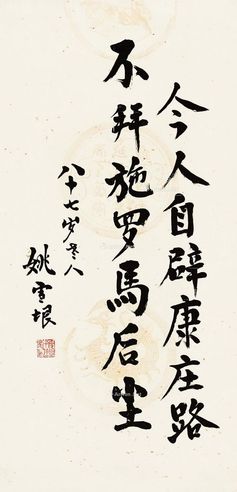 今人自辟康庄路
不拜施罗馬后尘
八十七岁老人
姚雪垠